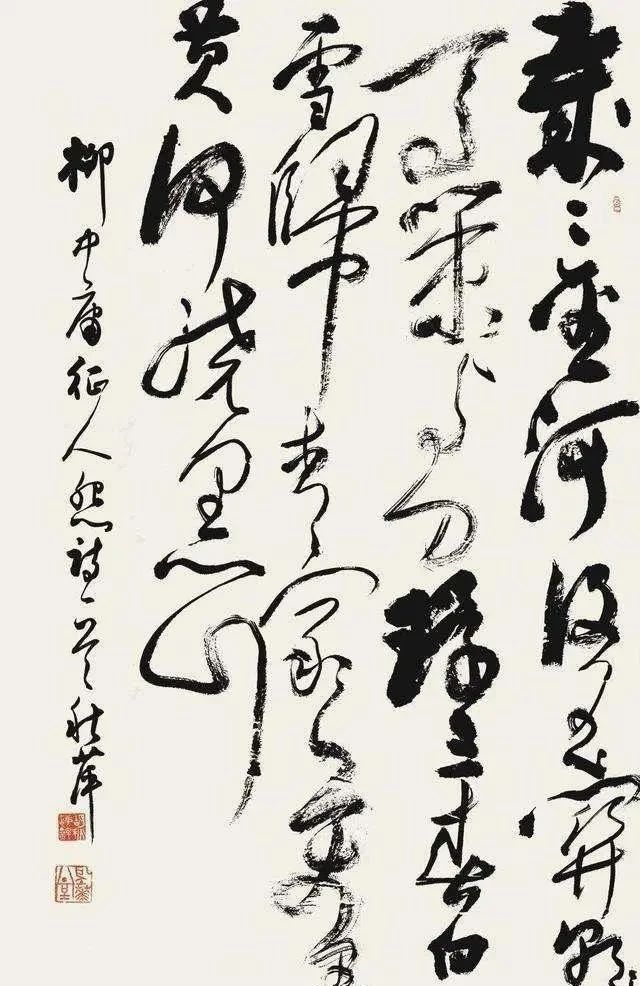 歲々金河復玉關朝
馬策与刀環三春白
雪歸青冢萬里
黄河繞黑山
柳中庸征人怨詩一首秋萍